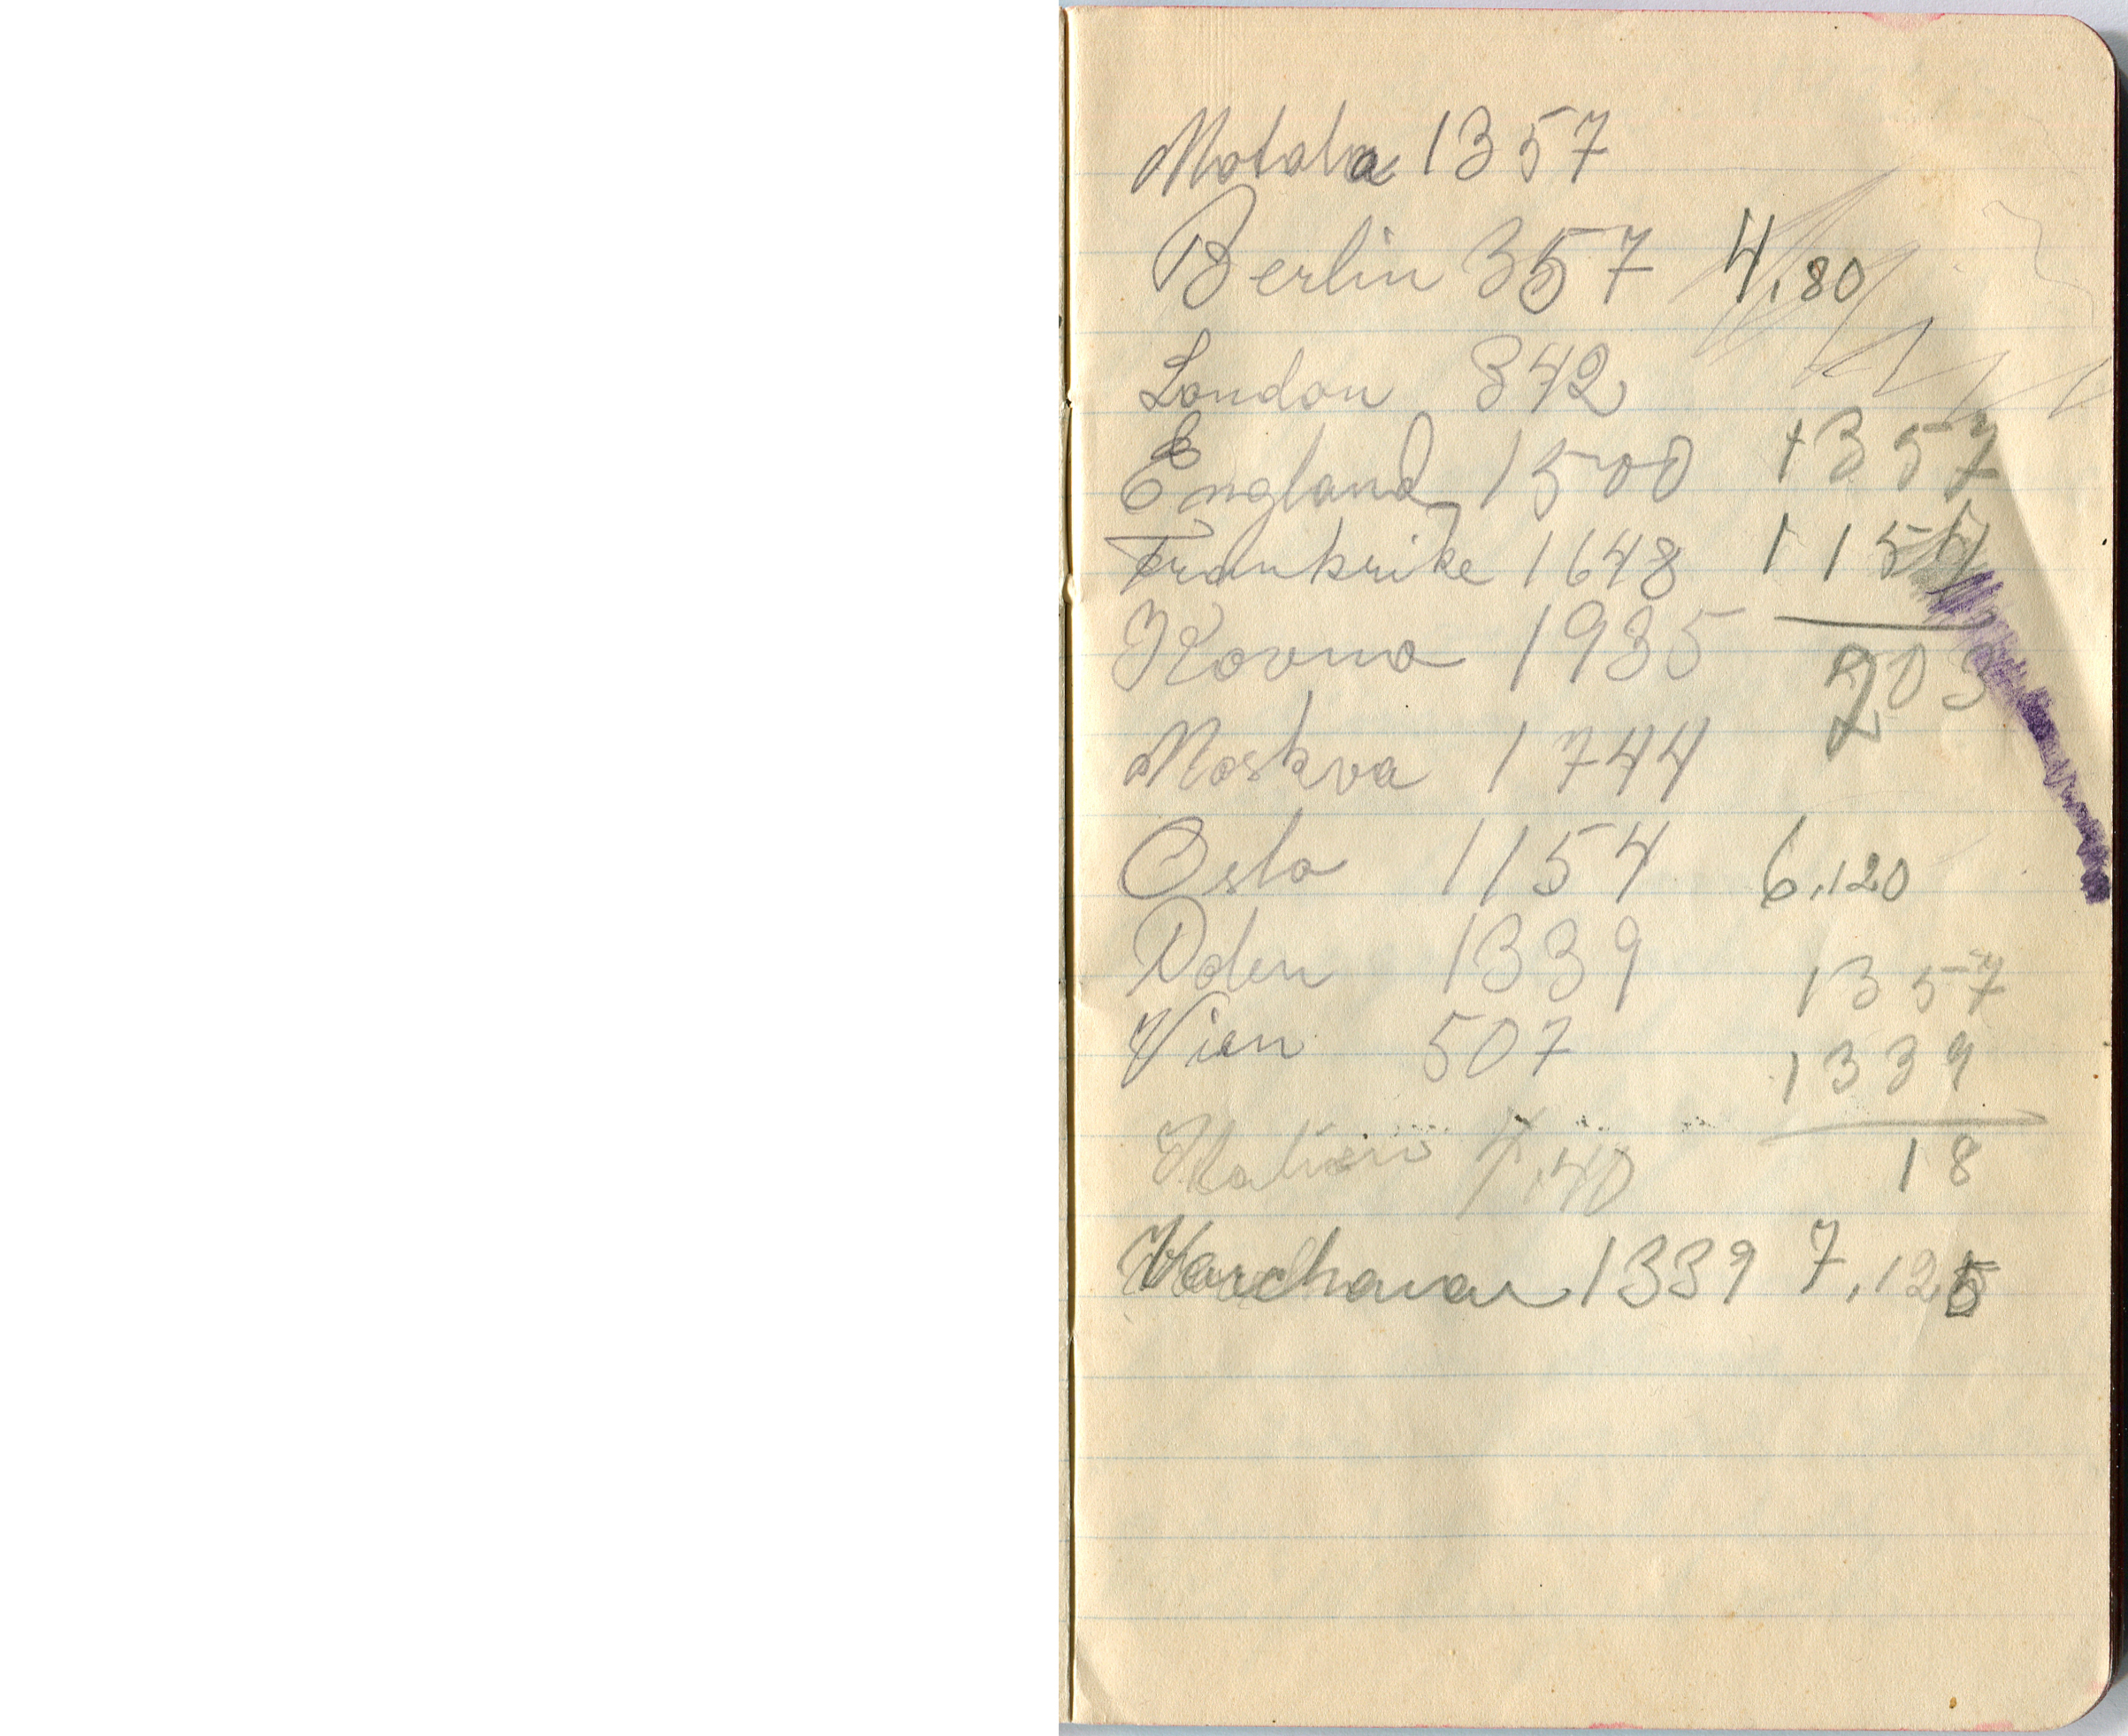 Motala 1357
Berlin 357 4,80
London 342
England 1500 1357
Frankrike 1648 1154
Kovno 1935 203
Moskva 1744
Oslo 1154 6,120
Polen 1339
1357
Vien 507 1339
Italien 7,40 18
Varchava 1339 7,125